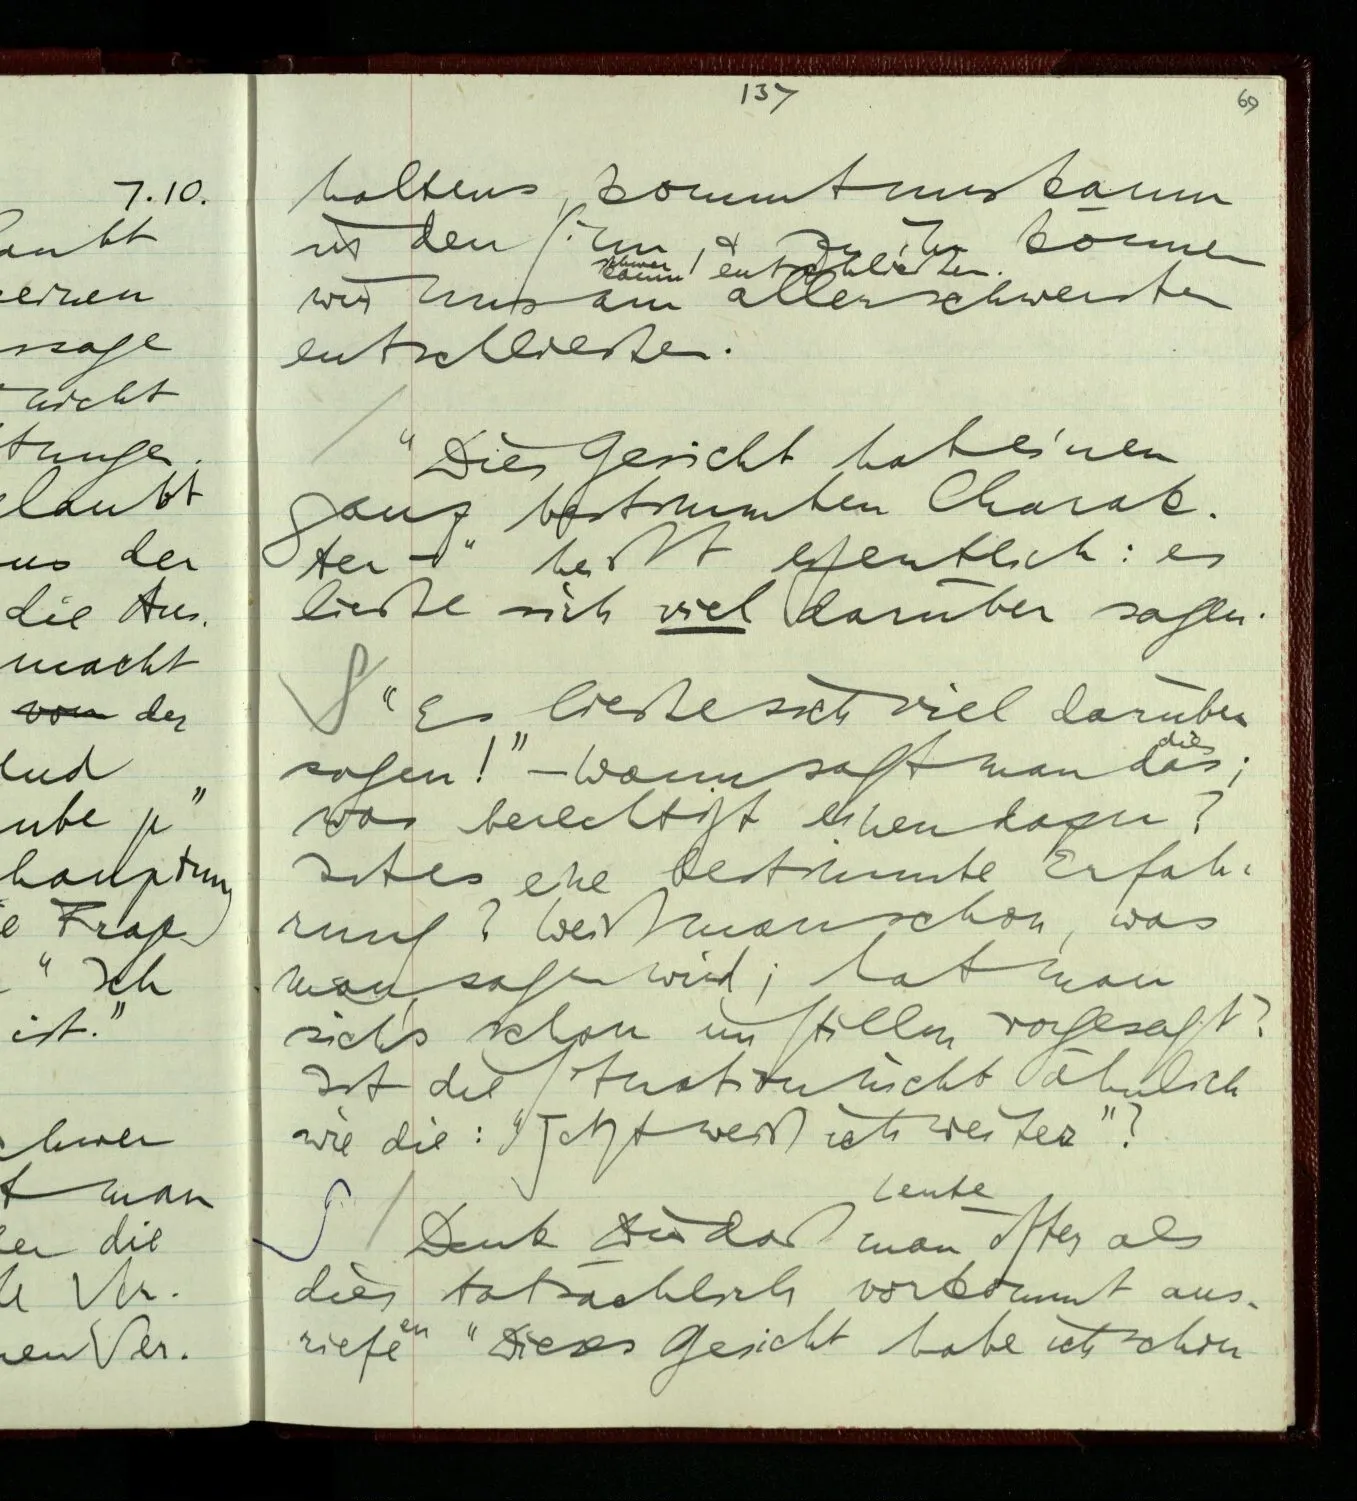 137
69
7.10.
haltens, kommt uns kaum
in den Sinn, & zu ihr können
schwer
kaum entschließen.
wir uns am allerschwersten
entschließen.
"Dies Gesicht hat einen
ganz bestimmten Charak-
ter –" heißt eigentlich: es
ließe sich viel darüber sagen.
S "Es ließe sich viel darüber
sagen!" – Wann sagt man das;
dies
was berechtigt einen dazu?
Ist es eine bestimmte Erfah-
rung? Weiß man schon, was
man sagen wird; hat man
sich's schon im Stillen vorgesagt?
Ist die Situation nicht ähnlich
wie die: "Jetzt weiß ich weiter"?
Leute
Denk Dir daß man öfter als
dies tatsächlich vorkommt aus-
riefe en "Dieses Gesicht habe ich schon
aubt
einen
ssage
nicht
tungen.
glaubt
aus der
die Aus-
macht
von der
und
aube p"
hauptung
e Frage
" Ich
ist."
schwer
t man
er die
Ver-
nen Ver-